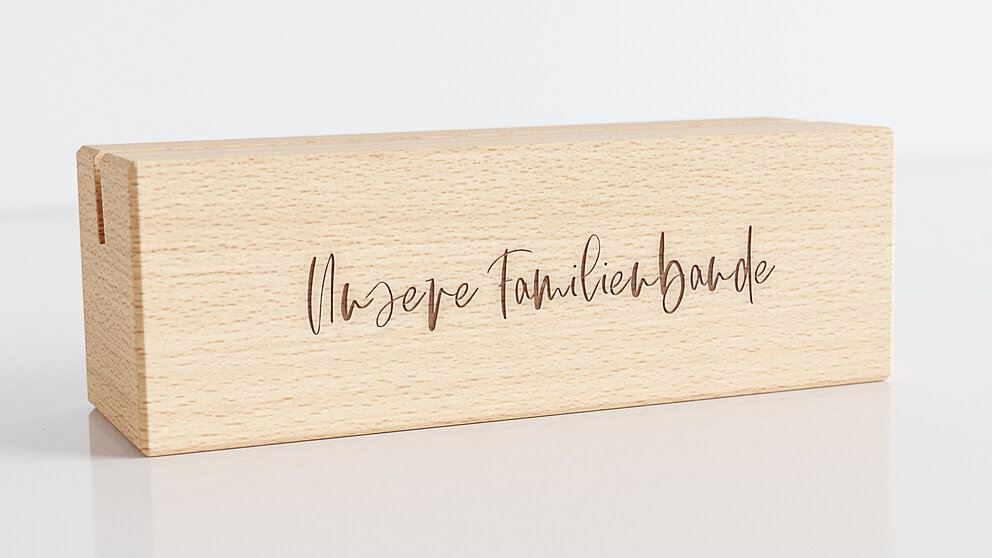 Unsere Familienbande